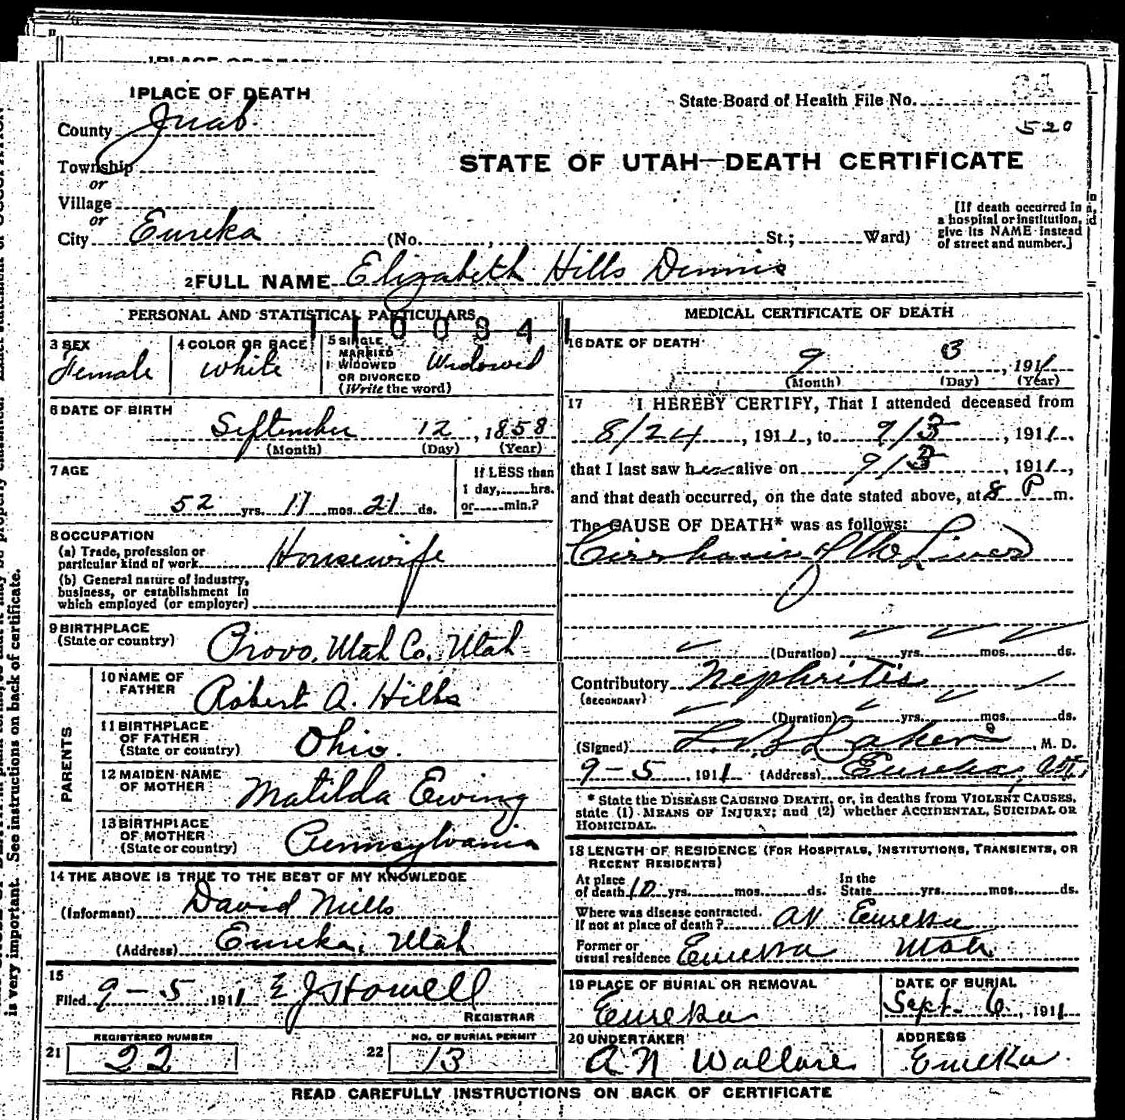 1 PLACE OF DEATH
State Board of Health File No.
County Juab.
520
Township
or
STATE OF UTAH—DEATH CERTIFICATE
Village
or
City Eureka (No. , St.; Ward)
[If death occurred in a hospital or institution, give its NAME instead of street and number.]
2 FULL NAME Elizabeth Hills Dennis
PERSONAL AND STATISTICAL PARTICULARS
110084
3 SEX
Female
4 COLOR OR RACE
White
5 SINGLE
MARRIED
WIDOWED
OR DIVORCED
(Write the word)
Widowed
6 DATE OF BIRTH
September 12, 1858
(Month) (Day) (Year)
7 AGE
52 yrs. 11 mos. 21 ds.
If LESS than
1 day, hrs.
or min.?
8 OCCUPATION
(a) Trade, profession or
particular kind of work Housewife
(b) General nature of industry,
business, or establishment in
which employed (or employer)
9 BIRTHPLACE
(State or country) Provo, Utah Co., Utah
PARENTS
10 NAME OF
FATHER Robert A. Hills
11 BIRTHPLACE
OF FATHER
(State or country) Ohio.
12 MAIDEN NAME
OF MOTHER Matilda Ewing
13 BIRTHPLACE
OF MOTHER
(State or country) Pennsylvania
14 THE ABOVE IS TRUE TO THE BEST OF MY KNOWLEDGE
(Informant) David Mills
(Address) Eureka, Utah
15
Filed 9-5 1911 E J Howell
REGISTRAR
REGISTERED NUMBER
21 22
NO. OF BURIAL PERMIT
22 13
MEDICAL CERTIFICATE OF DEATH
16 DATE OF DEATH
9 3, 1911
(Month) (Day) (Year)
17 I HEREBY CERTIFY, That I attended deceased from
8/24, 1911, to 9/3, 1911,
that I last saw her alive on 9/3, 1911,
and that death occurred, on the date stated above, at 8 P m.
The CAUSE OF DEATH* was as follows:
of the Liver
(Duration) yrs. mos. ds.
Contributory Nephritis
(SECONDARY)
(Duration) yrs. mos. ds.
(Signed) , M. D.
9-5, 1911 (Address) Eureka, Ut.
* State the DISEASE CAUSING DEATH, or, in deaths from VIOLENT CAUSES,
state (1) MEANS OF INJURY; and (2) whether ACCIDENTAL, SUICIDAL OR
HOMICIDAL.
18 LENGTH OF RESIDENCE (FOR HOSPITALS, INSTITUTIONS, TRANSIENTS, OR
RECENT RESIDENTS)
At place
of death 10 yrs. mos. ds.
In the
State yrs. mos. ds.
Where was disease contracted.
if not at place of death? at Eureka
Former or
usual residence Eureka Utah
19 PLACE OF BURIAL OR REMOVAL
Eureka
DATE OF BURIAL
Sept. 6, 1911
20 UNDERTAKER
A N Wallace
ADDRESS
Eureka.
READ CAREFULLY INSTRUCTIONS ON BACK OF CERTIFICATE
is very important. See instructions on back of certificate.